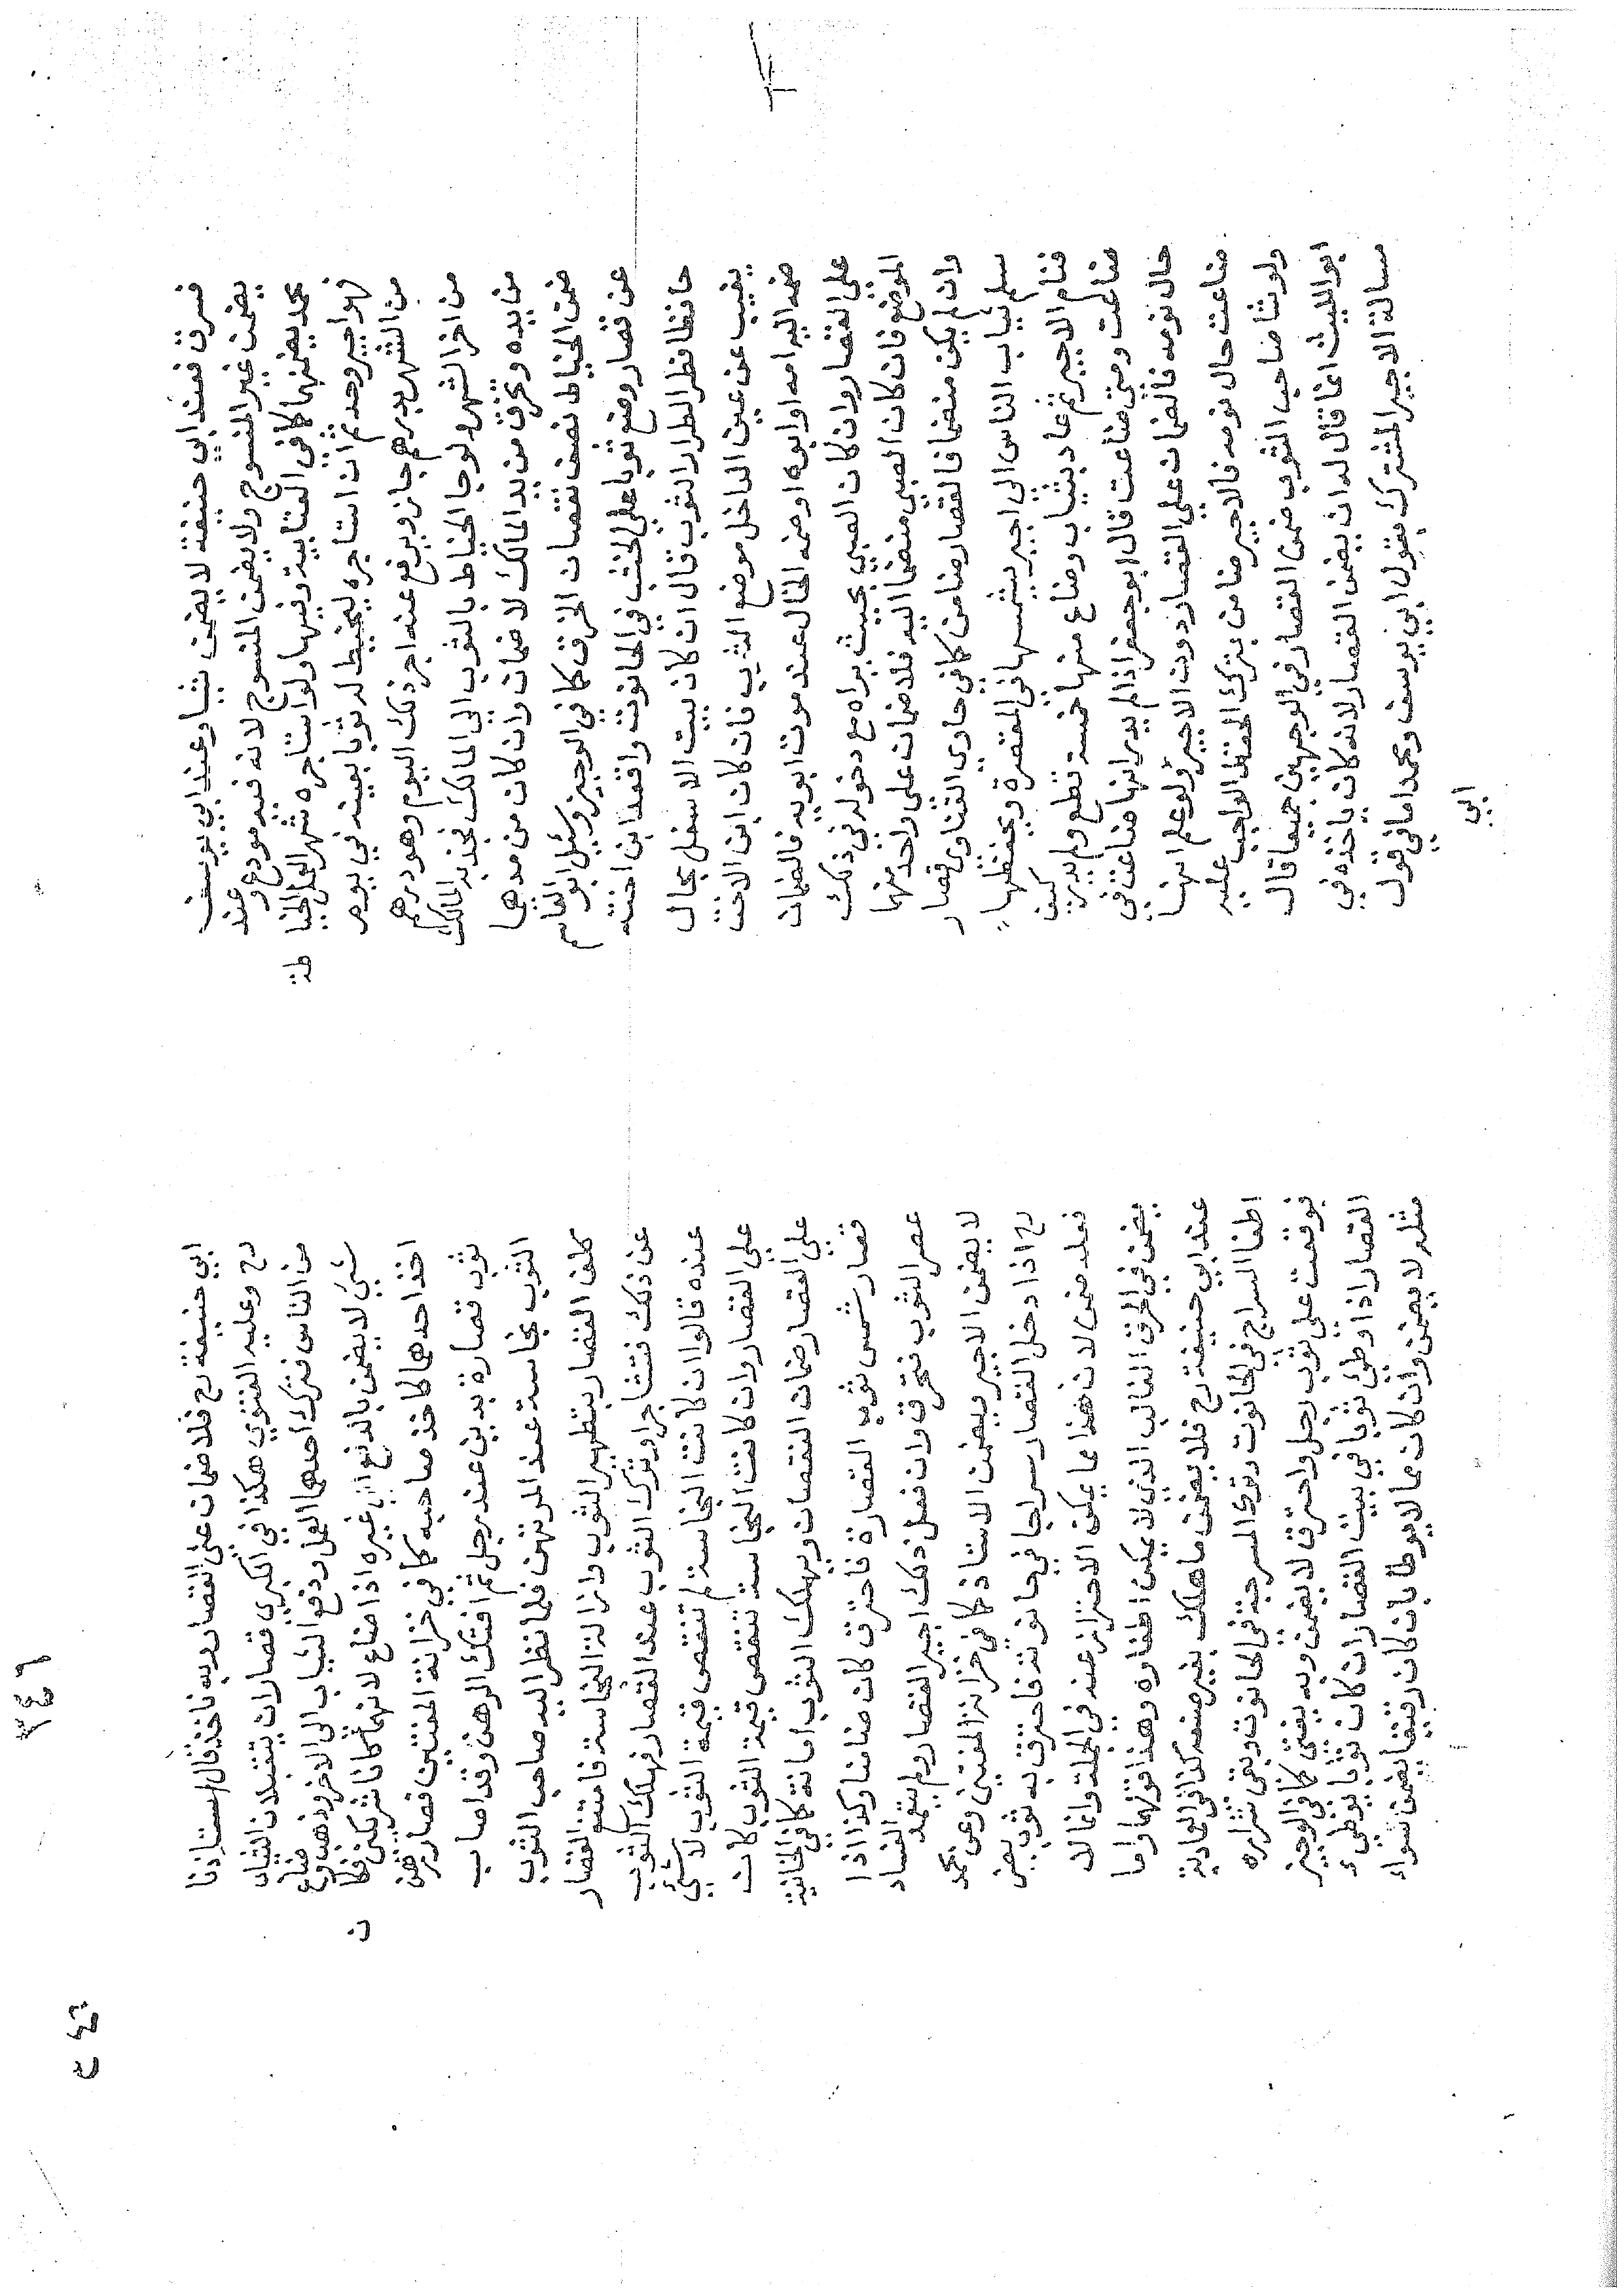 فسرق فعند ابي حنيفة لا يضمن شيئا وعند ابي يوسف
يضمن غير المنسوج ولا يضمن المنسوج لانه فيه مودع وعند
محمد يضمنها كما في العتابية وفيها ولو استاجره شهر العمل الخياطة
فهو اجير وحد ثم ان استاجره ليخيط له ثوبا بعينه في يوم
من الشهر بدرهم جاز ويرفع عنه اجر ذلك اليوم وهو درهم
من اخر الشهر ولو جا الخياط بالثوب الى المالك فجذبه المالك
من يده وتخرق من يد المالك لا ضمان وان كان من مدهما
ضمن الخياط نصف نقصان الخرق كما في الوجيز وسئل ابو القاسم
عن قصار وضع ثوبا على الخشب في الحانوت واقعد ابن اخته
حافظا فطر الطرار الثوب قال ان كان بيت الاسفل بحال
يغيب عن عين الداخل موضع الثوب فان كان ابن الاخت
ضمه اليه امه او ابوه او ضمه الخال عند موت ابويه فالضمان
على القصار وان كان الصبي بحيث يراه مع دخوله في ذلك
الموضع فان كان الصبي منضما اليه فلا ضمان على واحد منهما
وان لم يكن منضما فالقصار ضامن كما في حاوى الفتاوى قصار
سلم ثياب الناس الى اجير يشمسها في المقصرة ويحفظها
فنام الاجير ثم عاد بثياب وضاع منها خمسة قطع ولم يدر كيف
ضاعت ومتى ضاعت قال ابو جعفر اذا لم يدر انها ضاعت في
حال نومه فالضمان على القصار دون الاجير ولو علم انها
ضاعت حال نومه فالاجير ضامن بترك الحفظ الواجب عليه
ولو شا صاحب الثوب ضمن القصار في الوجهين جميعا قال
ابو الليث انما قال له ان يضمن القصار لانه كان ياخذه في
مسالة الاجير المشترك بقول ابي يوسف ومحمد اما في قول
ابي
ابي حنيفة رح فلا ضمان على القصار وبه ناخذ قال استاذنا
رح وعليه الفتوى هكذا في الكبرى قصاران يتقبلان الثياب
من الناس فترك احدهما العمل ودفع الثياب الى الاخر وذهب وضاع
شئ لا يضمن بالدفع الى غيره اذا ضاع لانهما كانا شريكين فكان
اخذ احدهما كاخذ صاحبه كما في خزانة المفتين قصار رهن
ثوب قصارة بدين عند رجل ثم افتك الرهن وقد اصاب
الثوب نجاسة عند المرتهن فلما نظر اليه صاحب الثوب
كلف القصار بتطهير الثوب وازالة النجاسة فامتنع القصار
عن ذلك فتشاجرا وترك الثوب عند القصار فهلك الثوب
عنده قالوا ان كانت النجاسة لم تنقص قيمة الثوب لا شئ
على القصار وان كانت النجاسة تنقص قيمة الثوب كان
على القصار ضمان النقصان ويهلك الثوب امانة كما في الخانية
قصار شمس ثوب القصارة فاحترق كان ضامنا وكذا اذا
عصر الثوب فتخرق وان فعل ذلك اجير القصار ولم يتعمد الفساد
لا يضمن الاجير ويضمن الاستاذ كما في خزانة المفتين وعن محمد
رح اذا دخل القصار سراجا في حانوته فاحترق به ثوب بغير
فعله ضمن لان هذا مما يمكن الاحتراز عنه في الجملة وانما لا
يضمن في الحرق الغالب الذي لا يمكن اطفاوه وهذا قولهما واما
عند ابي حنيفة رح فلا يضمن ما هلك بغير صنعه كذا في العمادية
اطفا السراج في الحانوت وترك المسرجة في الحانوت وبقي شراره
فوقعت على ثوب رجل واحترق لا يضمن وبه يفتى كما في الوجيز
القصار اذا وطئ ثوبا في بيت القصار ان كان ثوبا يوطئ
مثله لا يضمن وان كان مما لا يوطأ بان كان رقيقا يضمن سواء